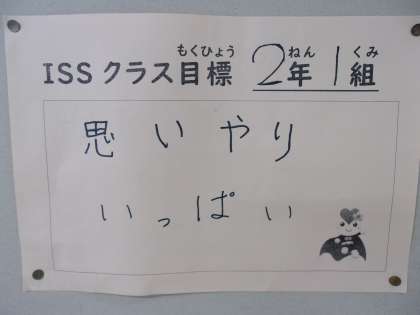 もくひょう ねん くみ
ISSクラス目標 2年 1組
思いやり
いっぱい